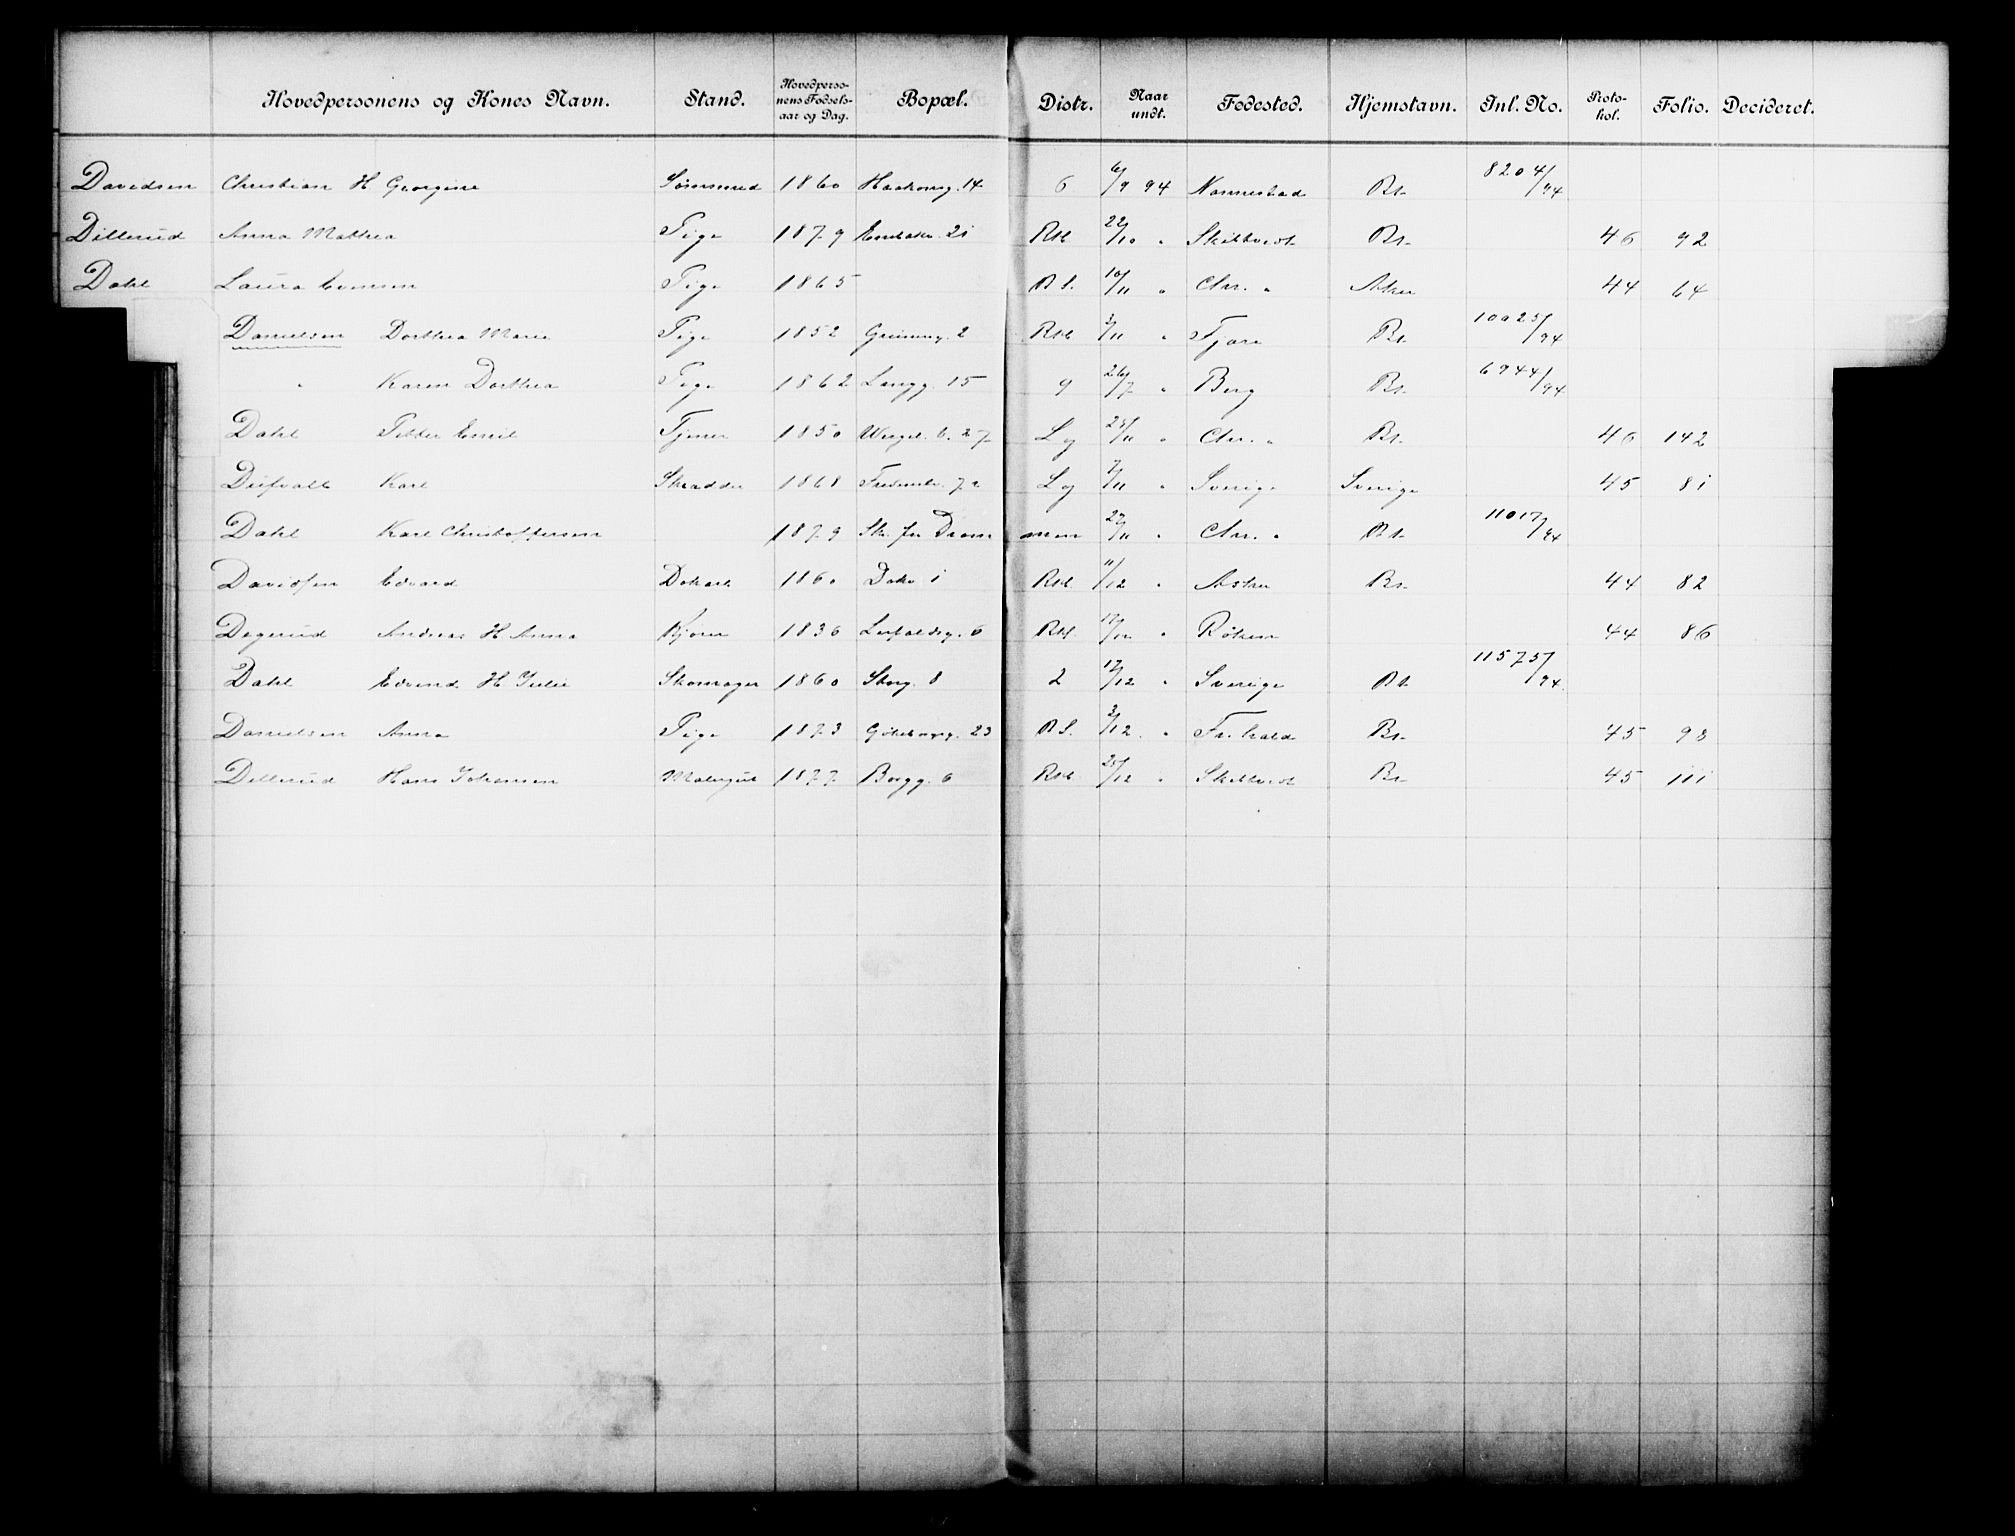 Hovedpersonens og Kones Navn. Stand. Hovedpersonens Fødselsaar og Dag. Bopæl. Distr. Naar undt. Fødested. Hjemstavn. Inl. No. Protokol. Folio. Decideret.
Davidsen Christian H Georgine 1860 Haakonsg. 14 6 6/9 94 Nannestad Bt. 8204/94
Dillerud Anna Mathea Pige 1879 21 Rkl 22/10 " Skibtvedt Bt. 46 92
Dahl Laura Pige 1865 B S. 10/11 " Chr. " Asker 44 64
Danielsen Dorthea Marie Pige 1852 2 Rkl 3/11 " Bt. 10025/94
" Karen Dorthea Pige 1862 Langg. 15 9 26/7 " Berg Bt. 6944/94
Dahl Petter Emil Tjener 1850 L g " Chr. " Bt. 46 142
Karl Skrædder 1868 L g 7/11 " Sverige Sverige 45 81
Dahl Karl Christoffersen 1879 Sk. fra Drammen 27/11 " Chr. " Bt. 11017/94
Davidsen Edvard 1860 1 Rkl. 11/12 " Asker Bt. 44 82
Degerud Andreas H Anna Kjører 1836 6 Rkl. 17/12 " Røken 44 86
Dahl H Julie Skomager 1860 Skovg. 8 2 17/12 " Sverige Bt. 11575/94
Danielsen Anna Pige 1873 Göteborgg. 23 B S. 3/12 " Fr. hald Bt. 45 98
Dillerud Hans Johansen Malergut 1877 Borgg. 6 Rkl. /12 " Skibtvedt Bt. 45 111